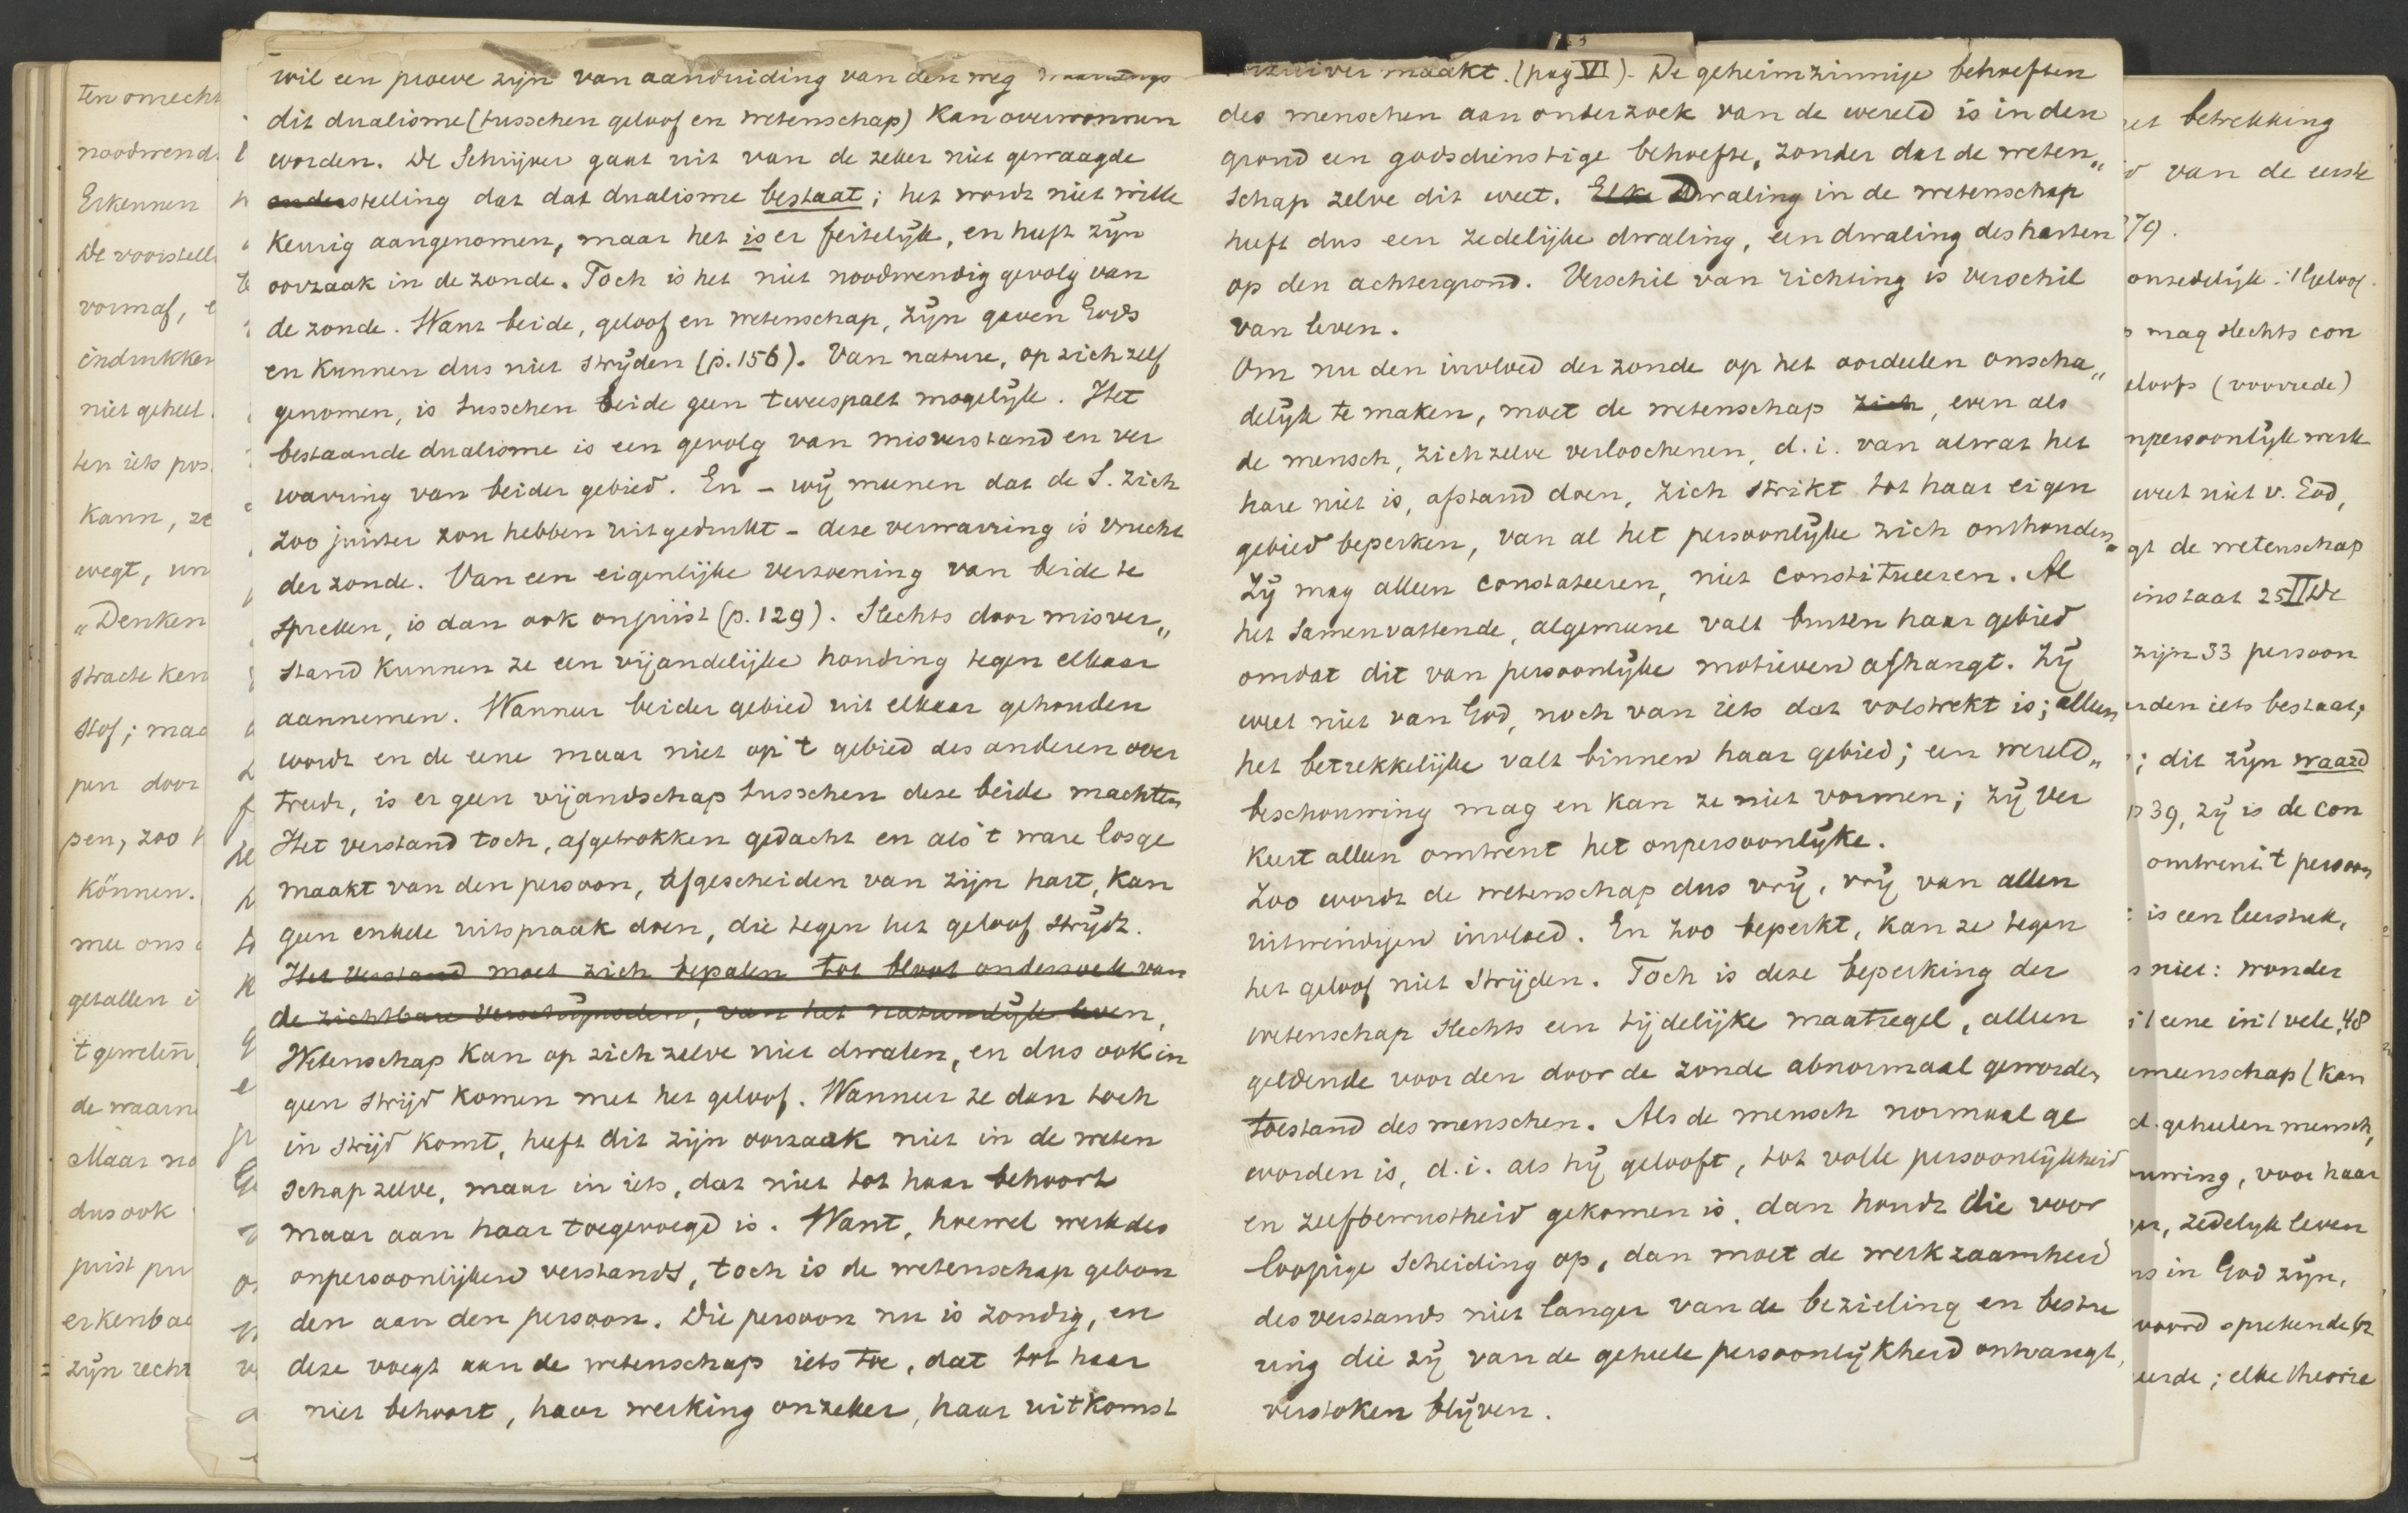 wil een proeve zijn van aanduiding van den weg waarlangs
dit dualisme (tusschen geloof en wetenschap) Kan overwonnen
worden. De Schrijver gaat uit van de zeker niet gewaagde
onderstelling dat dat dualisme bestaat; het wordt niet wille
keurig aangenomen, maar het is er feitelijk, en heeft zijn
oorzaak in de zonde. Toch is het niet noodwendig gevolg van
de zonde. Want beide, geloof en wetenschap, zijn gaven Gods
en kunnen dus niet strijden (p. 156). Van nature, op zich zelf
genomen, is tusschen beide geen tweespalt mogelijk. Het
bestaande dualisme is een gevolg van misverstand en ver
warring van beider gebied. En – wij meenen dat de S. zich
zoo juister zou hebben uitgedrukt – deze verwarring is vrucht
der zonde. Van een eigenlijke verzoening van beide te
spreken, is dan ook onjuist (p. 129). Slechts door misver„
stand kunnen ze een vijandelijke houding tegen elkaar
aannemen. Wanneer beider gebied uit elkaar gehouden
wordt en de eene maar niet op 't gebied des anderen over
treedt, is er geen vijandschap tusschen deze beide machten
Het verstand toch, afgetrokken gedacht en als 't ware losge
maakt van den persoon, afgescheiden van zijn hart, kan
geen enkele uitspraak doen, die tegen het geloof strijdt.
Het verstand moet zich bepalen tot bloot onderzoek van
de zichtbare verschijnselen, van het natuurlijk leven,
Wetenschap kan op zich zelve niet dwalen, en dus ook in
geen strijd komen met het geloof. Wanneer ze dan toch
in strijd komt, heeft dit zijn oorzaak niet in de weten
schap zelve, maar in iets, dat niet tot haar behoort
maar aan haar toegevoegd is. Want, hoewel werk des
onpersoonlijken verstands, toch is de wetenschap gebon
den aan den persoon. Die persoon nu is zondig, en
deze voegt aan de wetenschap iets toe, dat tot haar
niet behoort, haar werking onzeker, haar uitkomst
onzuiver maakt. (pag VI) – De geheimzinnige behoeften
des menschen aan onderzoek van de wereld is in den
grond een godsdienstige behoefte, zonder dat de weten„
schap zelve dit weet. Elke Dwaling in de wetenschap
heeft dus een zedelijke dwaling, een dwaling des harten
op den achtergrond. Verschil van richting is verschil
van leven.
Om nu den invloed der zonde op het oordeelen onscha„
delijk te maken, moet de wetenschap zich, even als
de mensch, zich zelve verloochenen, d. i. van alwat het
hare niet is, afstand doen, zich strikt tot haar eigen
gebied beperken, van al het persoonlijke zich onthouden.
Zij mag alleen constateeren, niet constitueeren. Al
het samenvattende, algemeene valt buiten haar gebied
omdat dit van persoonlijke motieven afhangt. Zij
weet niet van God, noch van iets dat volstrekt is; alleen
het betrekkelijke valt binnen haar gebied; een wereld„
beschouwing mag en kan ze niet vormen; zij ver
keert alleen omtrent het onpersoonlijke.
Zoo wordt de wetenschap dus vrij, vrij van allen
uitwendigen invloed. En zoo beperkt, kan ze tegen
het geloof niet strijden. Toch is deze beperking der
wetenschap slechts een tijdelijke maatregel, alleen
geldende voor den door de zonde abnormaal geworden
toestand des menschen. Als de mensch normaal ge
worden is, d. i. als hij gelooft, tot volle persoonlijkheid
en zelfbewustheid gekomen is, dan houdt die voor
loopige scheiding op, dan moet de werkzaamheid
des verstands niet langer van de bezieling en bestu
ring die zij van de geheele persoonlijkheid ontvangt,
verstoken blijven.
ten onrecht
noodwend
Erkennen
De voorstell
vormaf, e
indrukken
niet geheel
ten iets pos
Kann, ze
wegt, un
„Denken
stracte ken
stof; maa
pen door
pen, zoo
Können.
mee ons
getallen i
't geweten
de waarn
Maar na
dus ook
juist pu
erkenbaa
zijn recht
et betrekking
van de eerste
79.
onzedelijk: 't Geloof
mag slechts con
eloofs (voorrede)
npersoonlijk werk
weet niet v. God,
gt de wetenschap
instaat 25 II De
zijn 33 persoon
den iets bestaat;
; dit zijn waard
p 39, zij is de con
omtrent 't persoon
is een leerstuk,
s niet: wonder
't eene in 't vele, 48
emeenschap (kan
d. geheelen mensch,
ouwing, voor haar
en, zedelijk leven
ns in God zijn,
woord sprekende
eerde; elke theorie